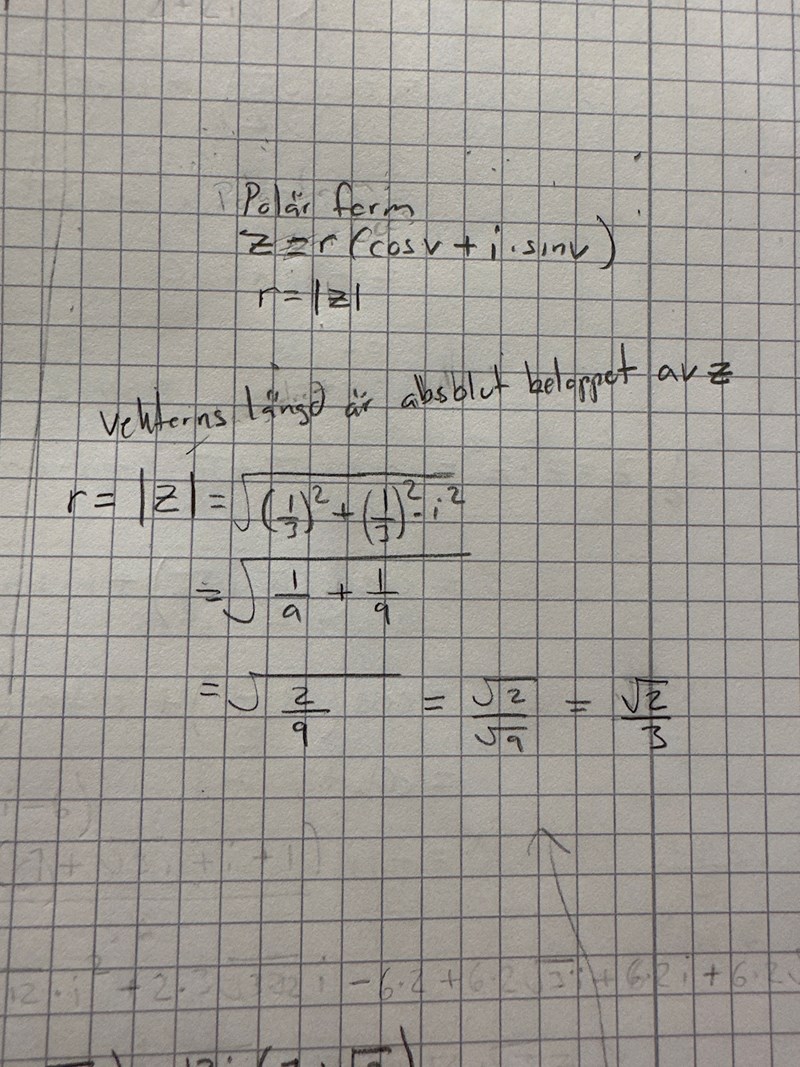 Polär form
z = r (cos v + i · sin v)
r = |z|
Vektorns längd är absolut beloppet av z
r = |z| = √((1/3)² + (1/3)² · i²)
= √(1/9 + 1/9)
= √(2/9) = √2/√9 = √2/3